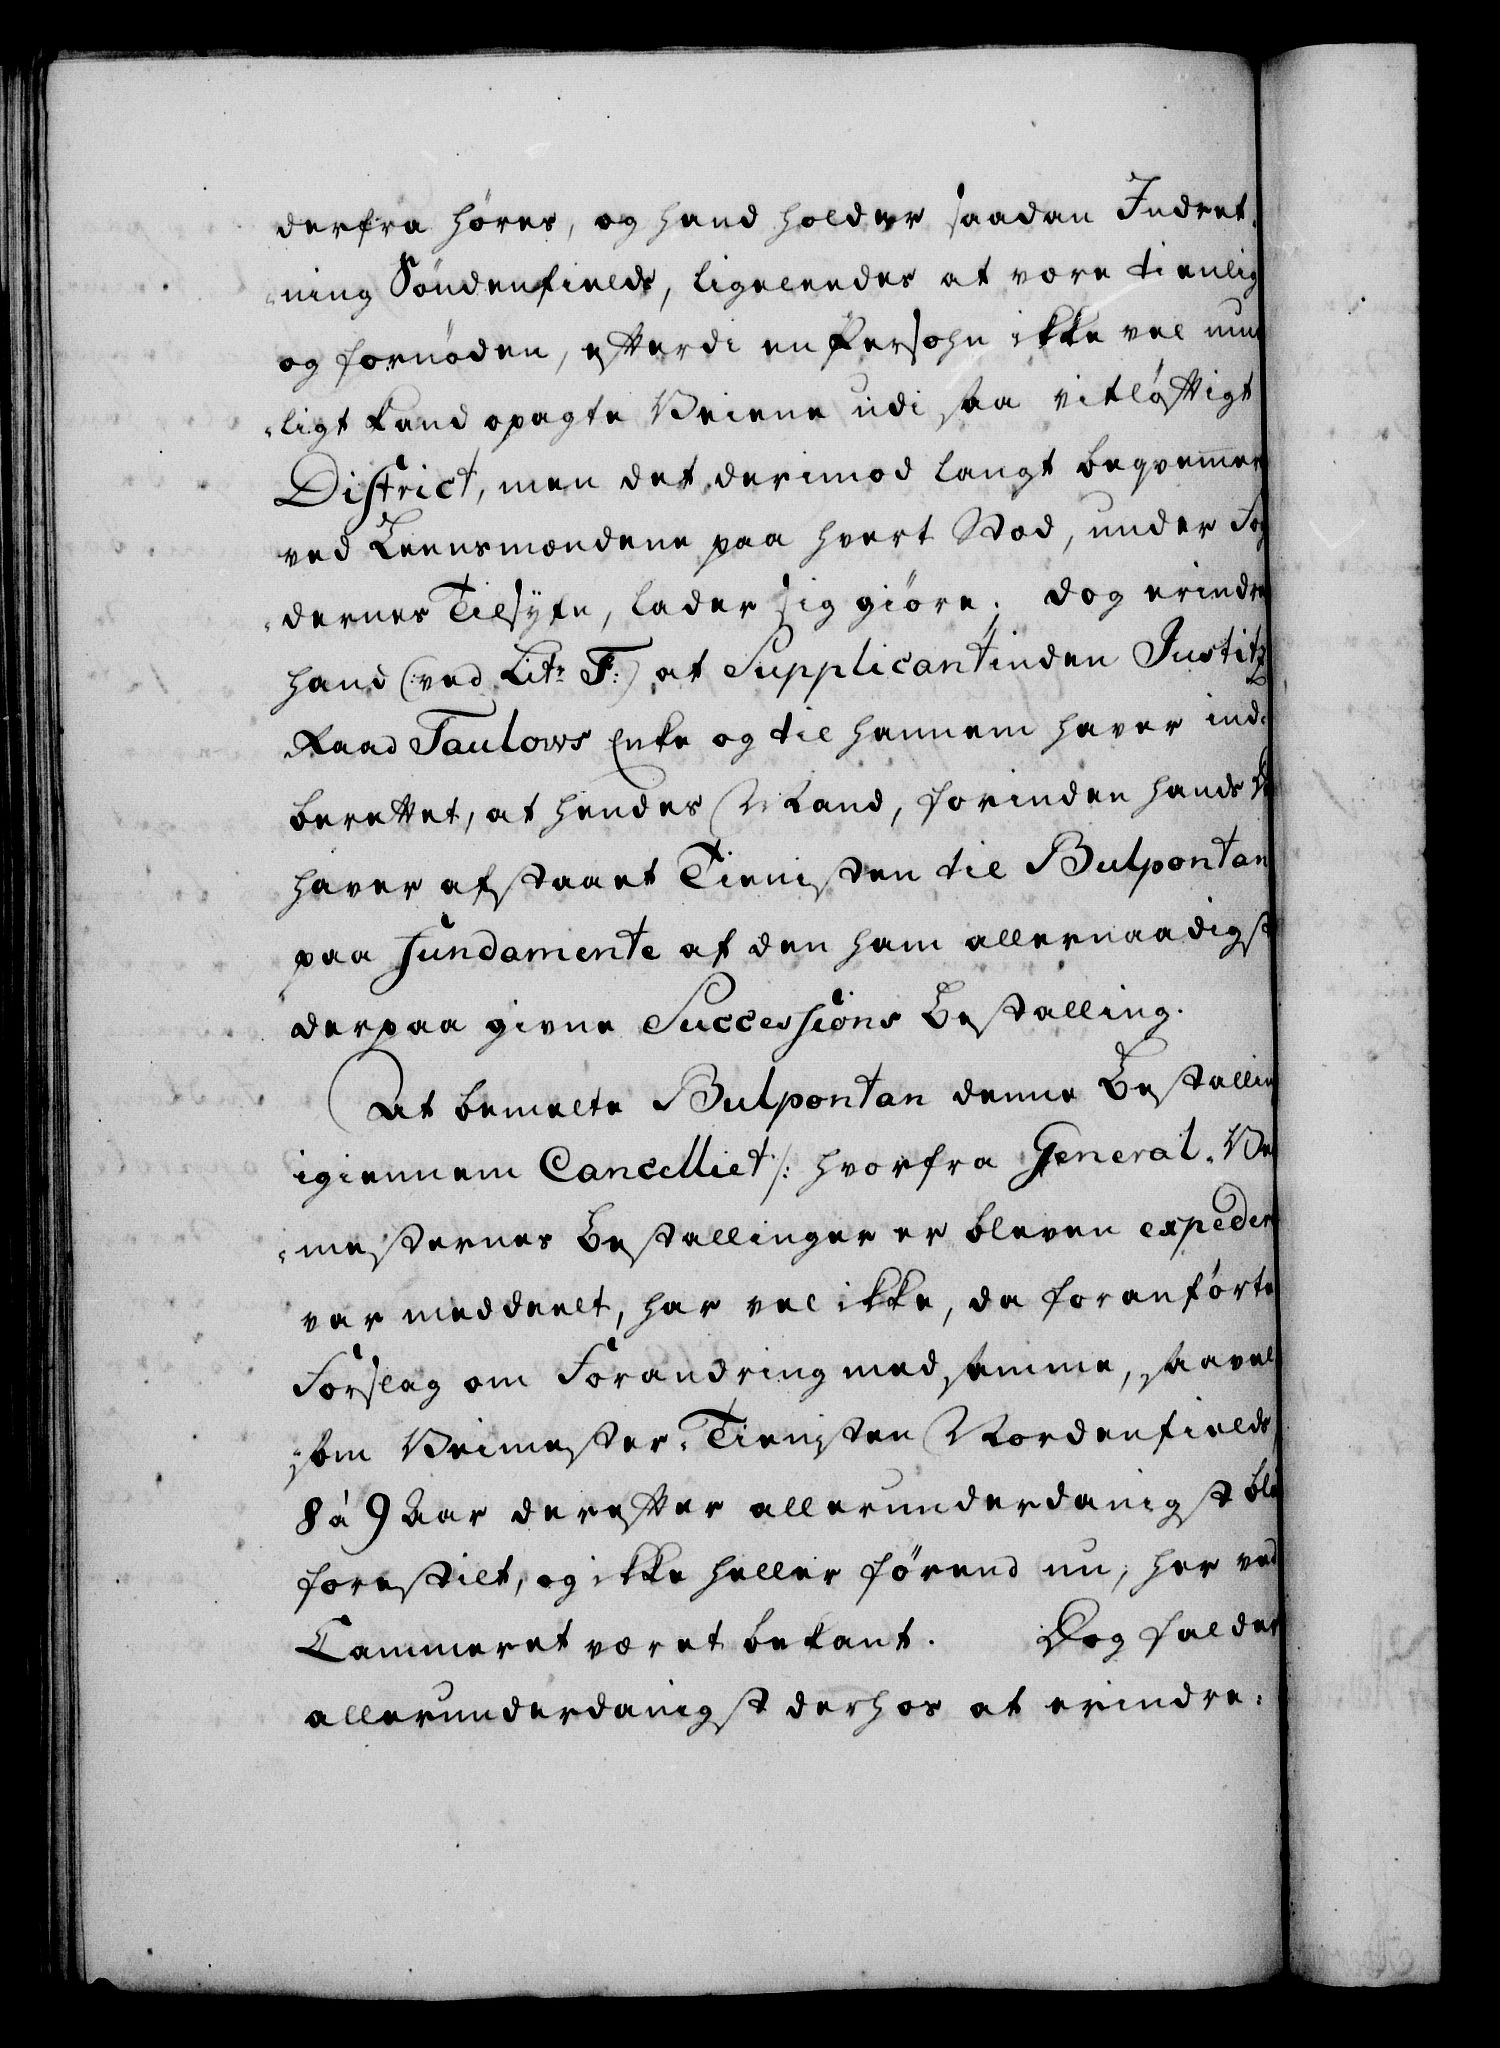 derfra høres, og hand holder saadan Indret-
-ning Søndenfields, ligeleedes at være tienlig
og fornøden, efterdi en Persohn ikke vel mue
-ligt kand opagte Veiene udi saa vitløftigt
District, men det derimod langt beqvemmer
ved Leensmændene paa hvert Stæd, under Fog
-dernes Tilsyfn, lader sig giøre; dog erindrer
hand (:ved Litr: F:) at Supplicantinden Justitz
Raad Taulows Enke og til hannem haver ind-
berettet, at hendes Mand, forinden hands
haver afstaaet Tienisten til Bulpontan
paa Fundamente af den ham allernaadigst
derpaa givne Successions Bestalling.
At bemelte Bulpontan denne Bestalling
igiennem Cancelliet /: hvorfra General-Vei
-mesternes Bestallinger er bleven expedert
var meddeelt, har vel ikke, da foranførte
Forslag om Forandring med samme, saavel
som Veimester-Tienisten Nordenfields
8 à 9 Aar derefter allerunderdanigst blev
forestilt, og ikke heller førend nu, her ved
Cammeret været bekant. Dog falder
allerunderdanigst derhos at erindre: